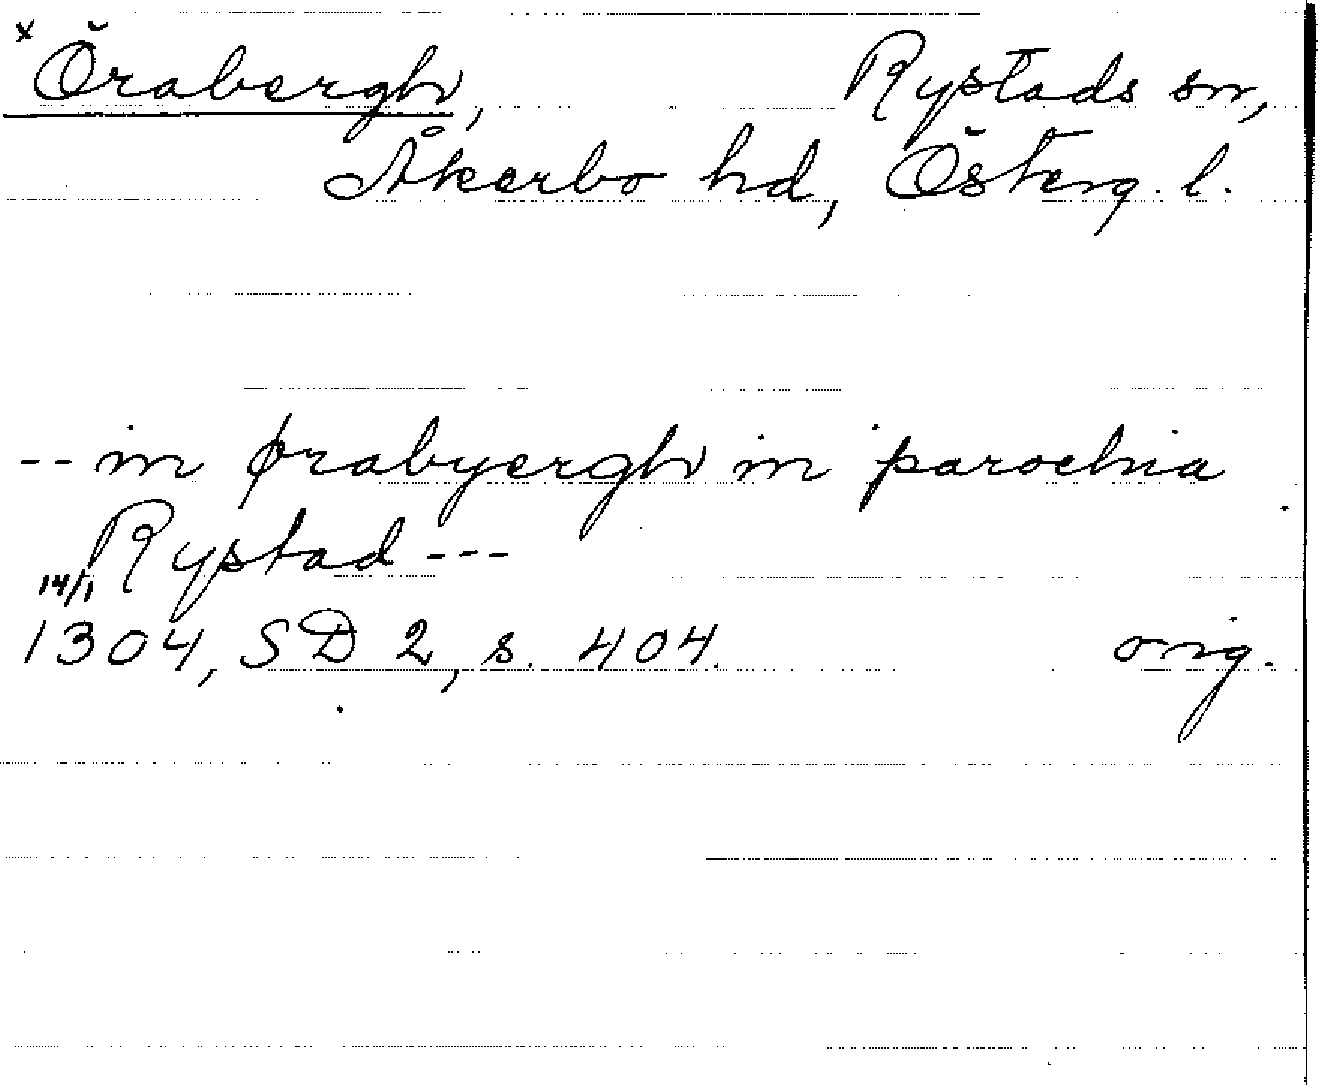 x Örabergh, Rystads sn,
Åkerbo hd, Österg. l.
-- in ørabyergh in parochia
Rystad ---
14/1
1304, SD 2, s. 404. orig.